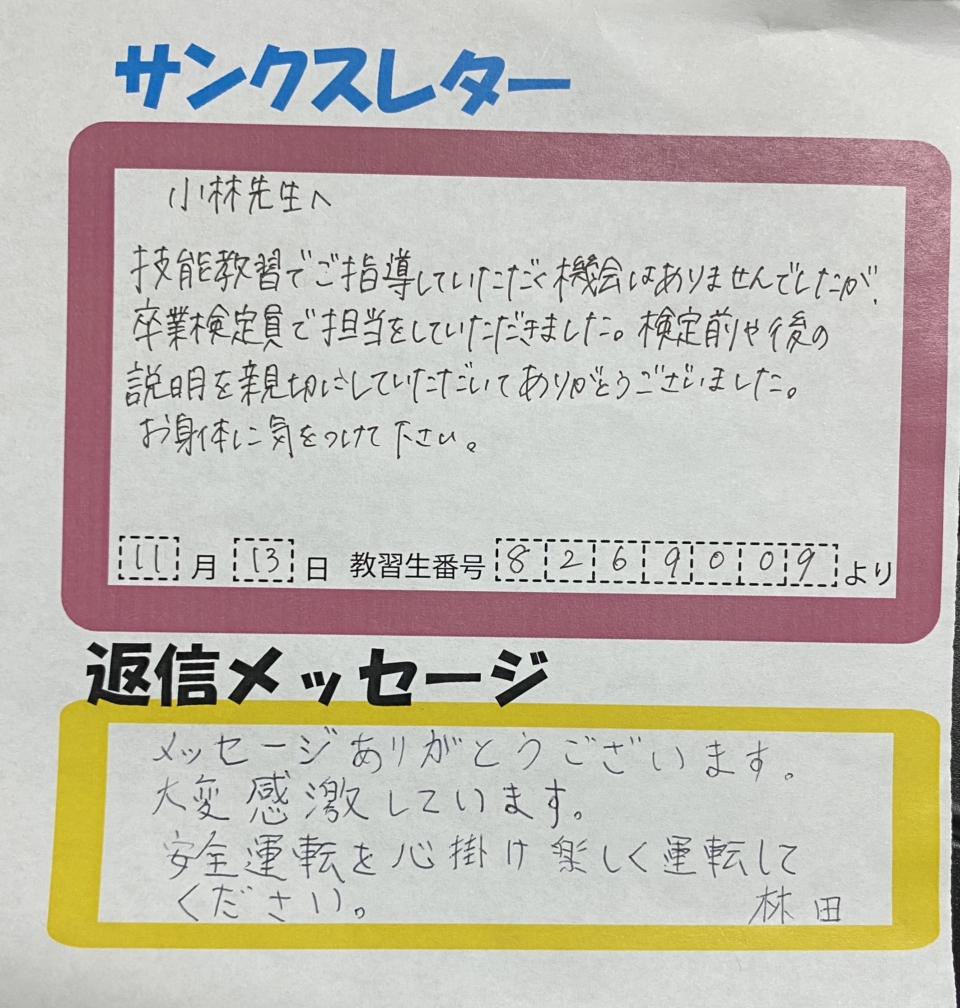 サンクスレター
小林先生へ
技能教習でご指導していただく機会はありませんでしたが、
卒業検定員で担当をしていただきました。検定前や後の
説明を親切にしていただいてありがとうございました。
お身体に気をつけて下さい。
11月13日 教習生番号 8269009より
返信メッセージ
メッセージありがとうございます。
大変感激しています。
安全運転を心掛け楽しく運転して
ください。 林田